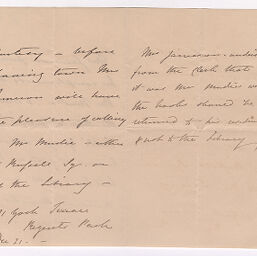 courtesy – before
leaving town Mr
Jameson will have
the pleasure of calling
Mr Mudie – either
Russell Sq. or
at the Library –
York Terrace
Regents Park
Dec 21. –
Mr Jameson
from the clerk that
it was Mr Mudie
the books should be
returned to
& not to the Library